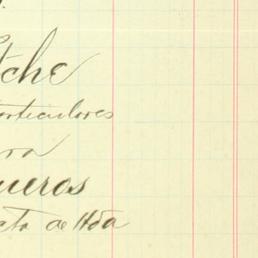 tche
orticulores
ra
ueros
cto de Hda